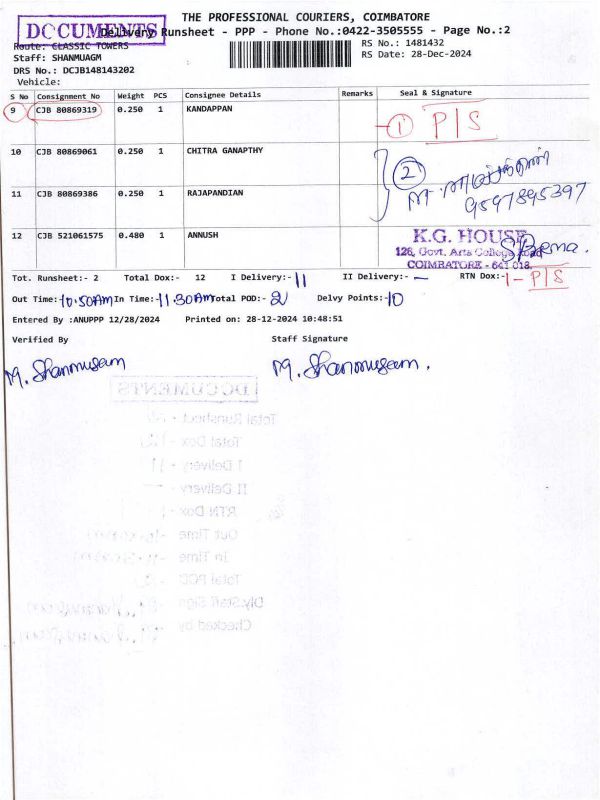 THE PROFESSIONAL COURIERS, COIMBATORE
DOCUMENTS
Delivery Runsheet - PPP - Phone No.:0422-3505555 - Page No.:2
Route: CLASSIC TOWERS
RS No.: 1481432
Staff: SHANMUAGM
RS Date: 28-Dec-2024
DRS No.: DCJB148143202
Vehicle:
S No Consignment No Weight PCS Consignee Details Remarks Seal & Signature
9 CJB 80869319 0.250 1 KANDAPPAN
1 P|S
10 CJB 80869061 0.250 1 CHITRA GANAPTHY
2
9597895397
11 CJB 80869386 0.250 1 RAJAPANDIAN
12 CJB 521061575 0.480 1 ANNUSH
K.G. HOUSE
126, Govt. Arts College Road
COIMBATORE - 641 018.
Tot. Runsheet:- 2 Total Dox:- 12 I Delivery:- 11 II Delivery:- — RTN Dox:- 1 - P|S
Out Time:- 10:50AM In Time:- 11:30AM Total POD:- 2 Delvy Points:- 10
Entered By :ANUPPP 12/28/2024 Printed on: 28-12-2024 10:48:51
Verified By Staff Signature
M. Shanmugam M. Shanmugam.
DOCUMENTS
Total Runsheet -
Total Dox - 12
I Delivery - 11
II Delivery -
RTN Dox -
Out Time -
In Time -
Total POD -
Dly.Staff Sign
Checked by